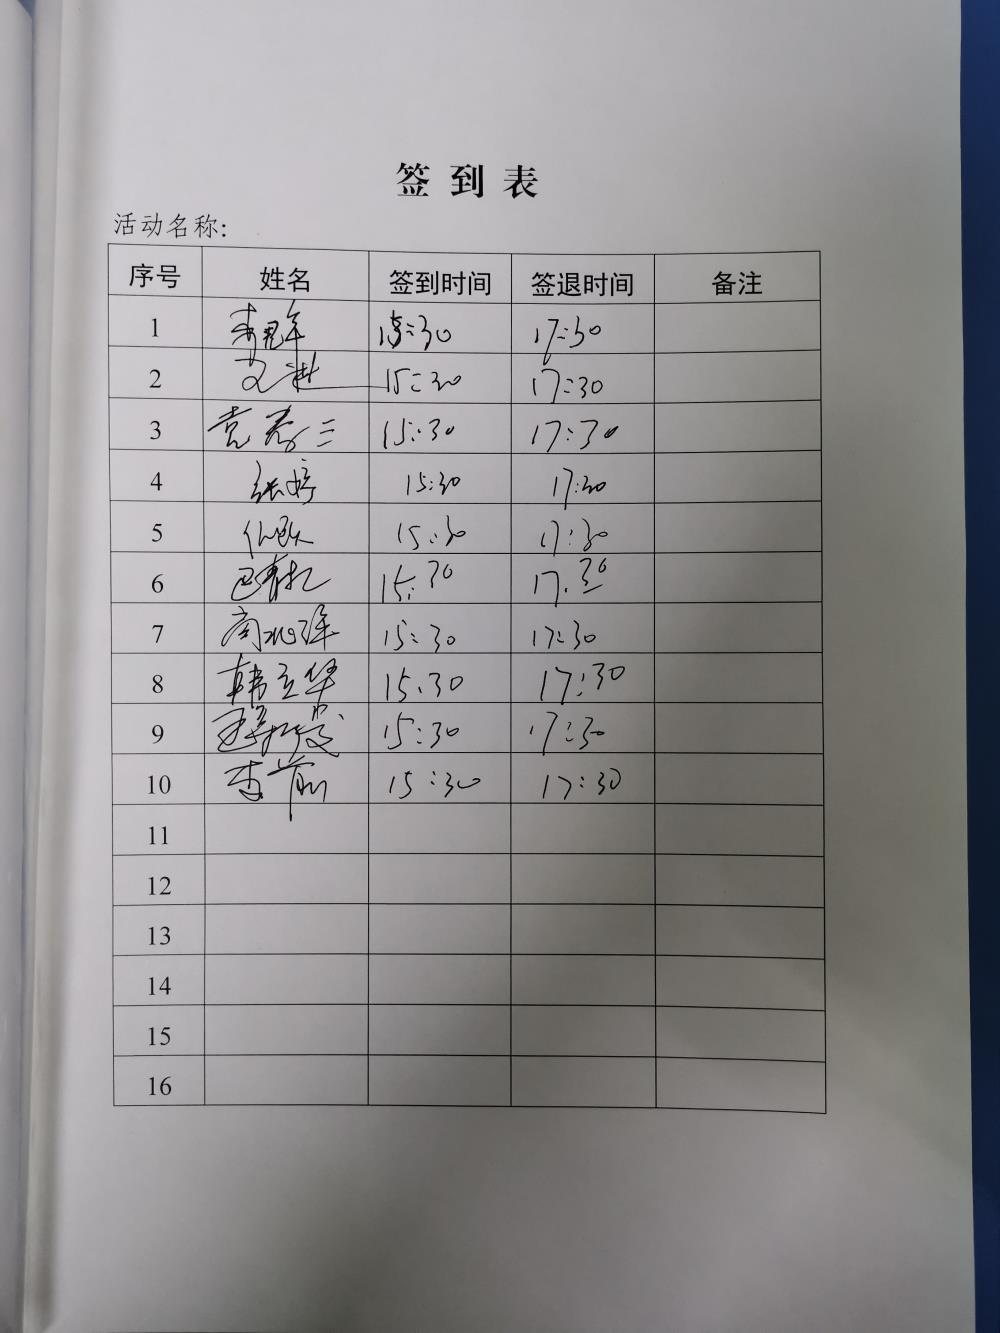 签到表
活动名称:
序号 姓名 签到时间 签退时间 备注
1 15:30 17:30
2 艾进 15:30 17:30
3 袁春三 15:30 17:30
4 张婷 15:30 17:30
5 15:30 17:30
6 15:30 17.30
7 15:30 17:30
8 韩立华 15:30 17:30
9 15:30 17:30
10 李前 15:30 17:30
11
12
13
14
15
16